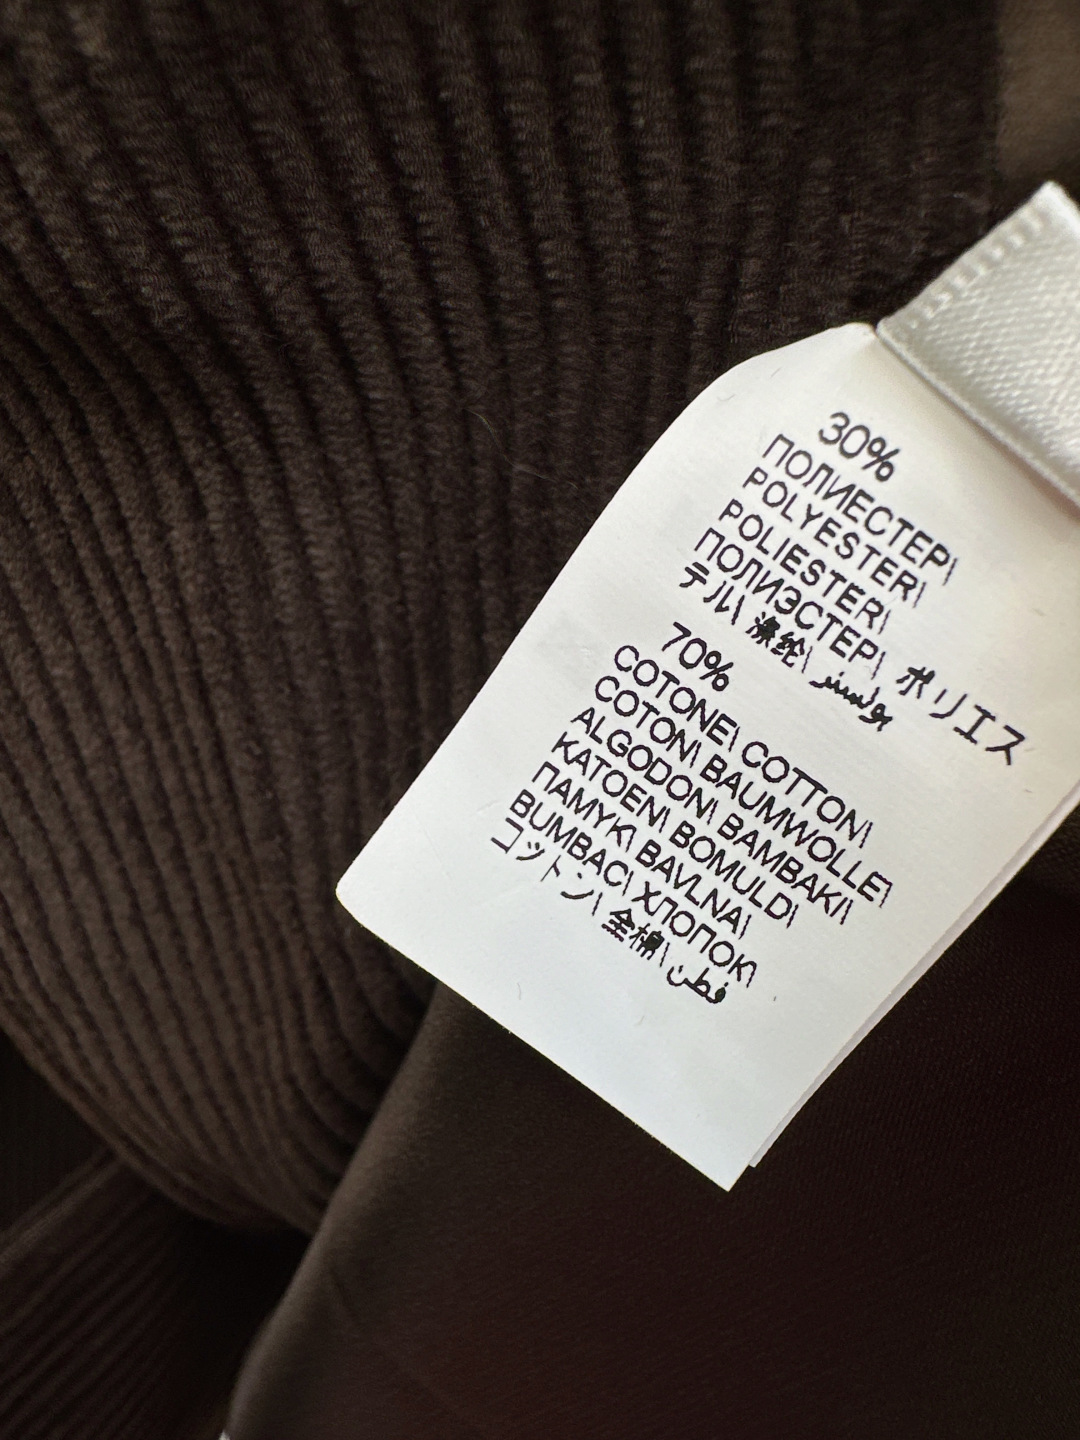 30%
ПОЛИЕСТЕР\
POLYESTER\
POLIESTER\
ПОЛИЭСТЕР\ ポリエス
テル\ 涤纶\ بوليستر
70%
COTONE\ COTTON\
COTON\ BAUMWOLLE\
ALGODON\ BAMBAKI\
KATOEN\ BOMULD\
ПАМУК\ BAVLNA\
BUMBAC\ ХЛОПОК\
コットン\ 全棉\ قطن